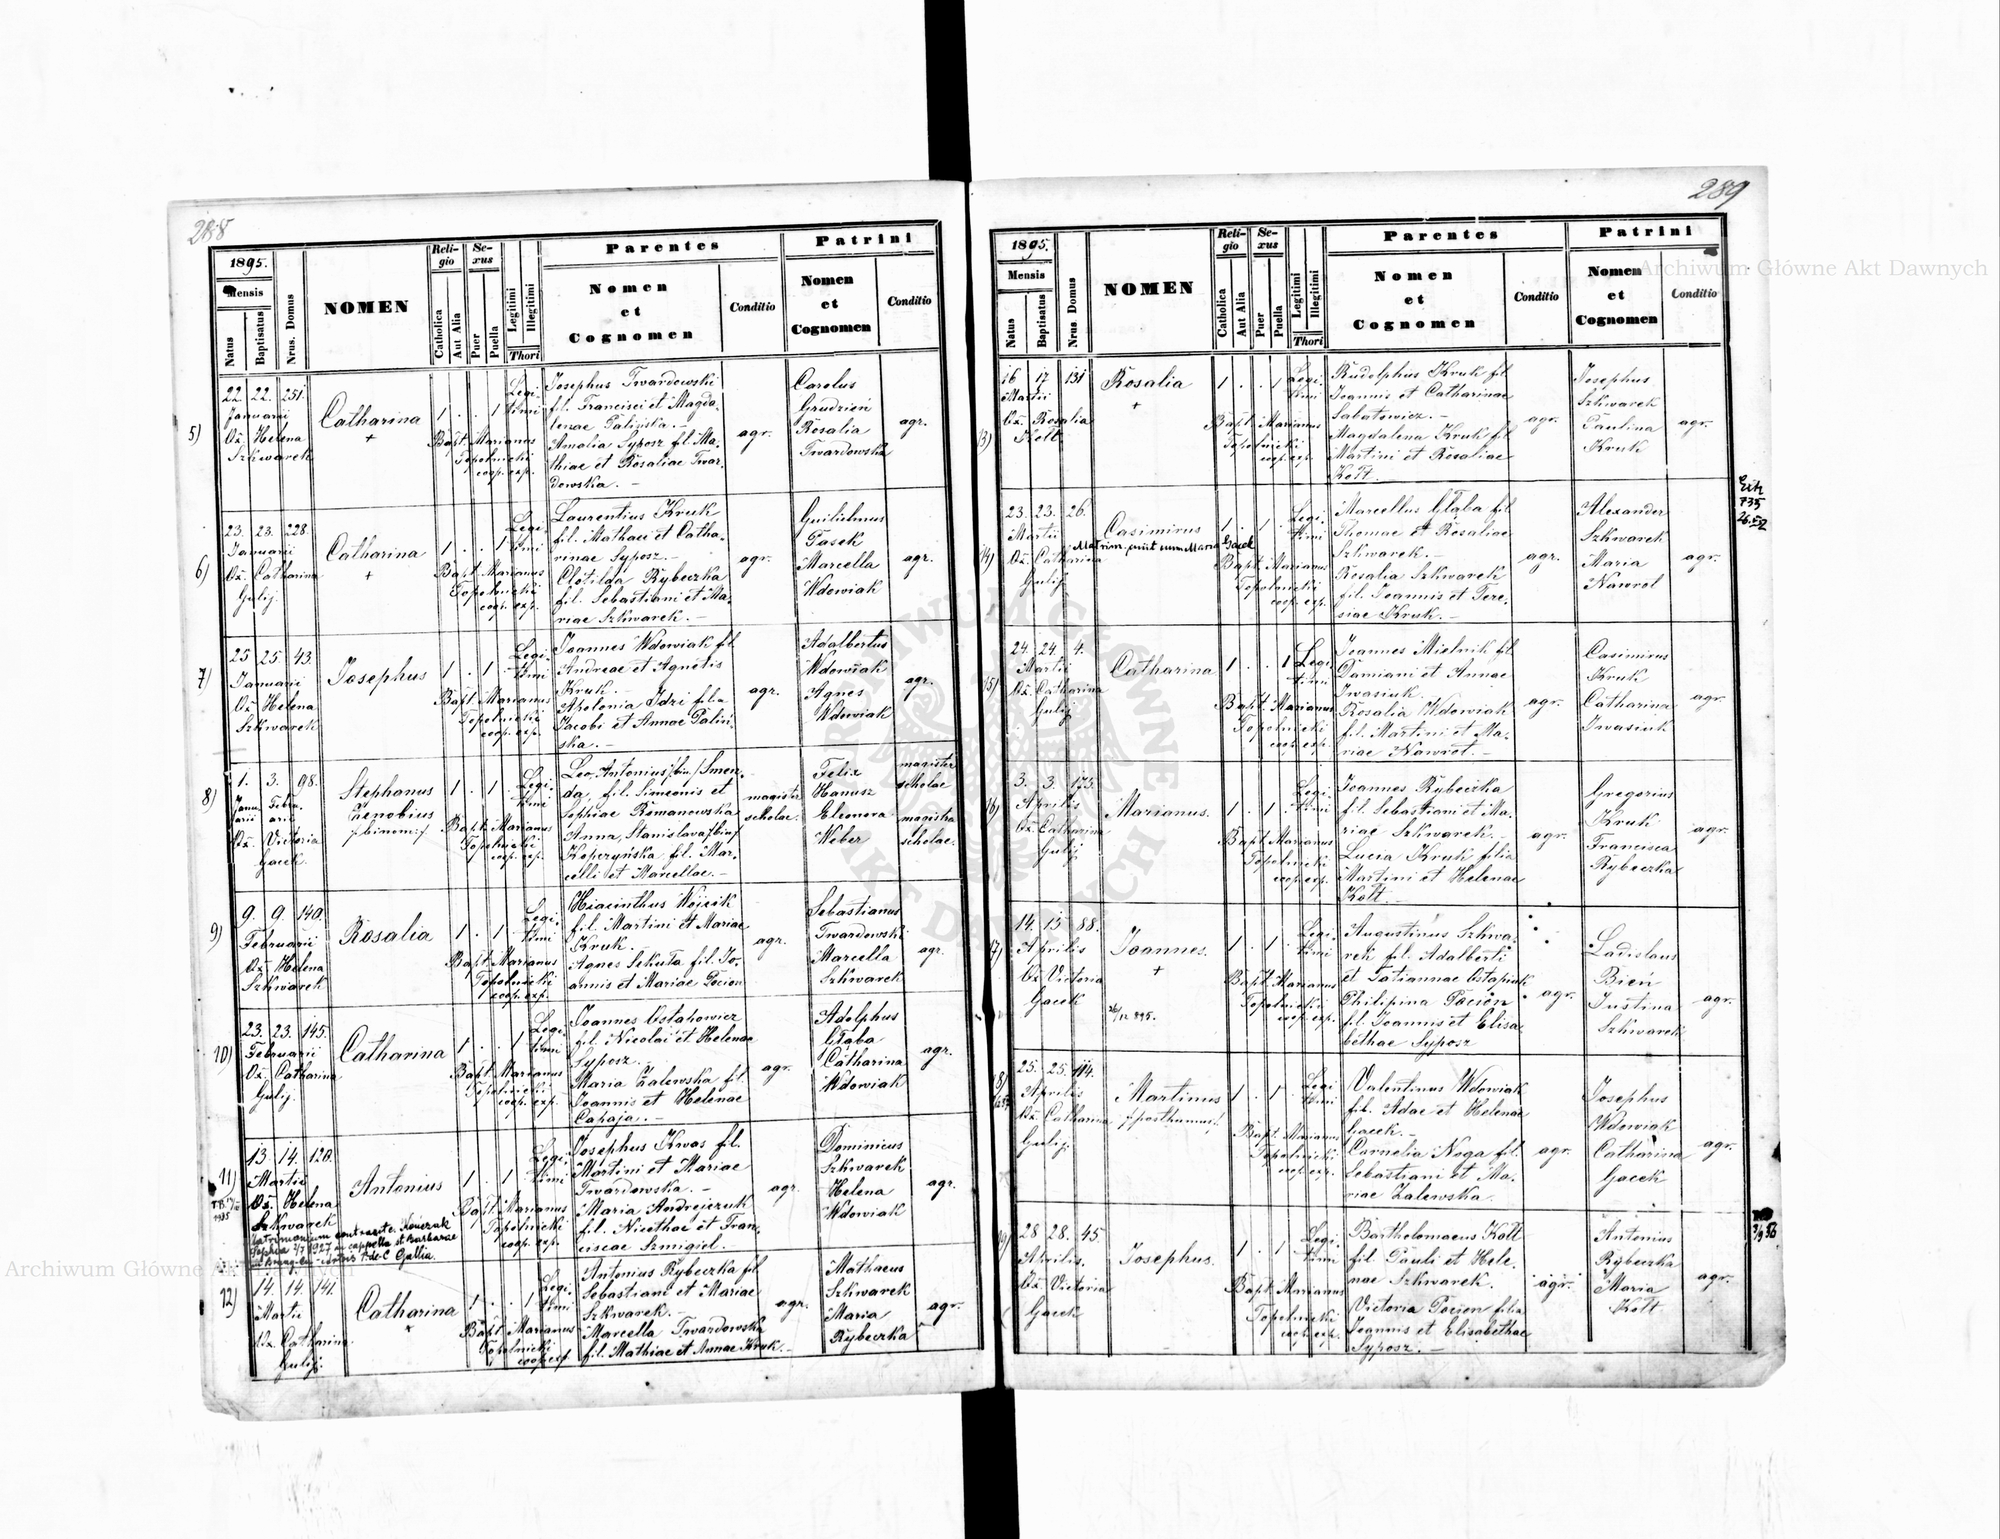 288
1895.
Mensis
Natus
Baptisatus
Nrus. Domus
NOMEN
Reli-
gio
Catholica
Aut Alia
Se-
xus
Puer
Puella
Legitimi
Illegitimi
Thori
Parentes
Nomen
et
Cognomen
Conditio
Patrini
Nomen
et
Cognomen
Conditio
5)
22. 22. 251.
Januarii
Ob. Helena
Szkwarek
Catharina
+
1 . . 1 Legi-
timi
Bapt. Marianus
Topolnicki
coop. exp.
Josephus Twardowski
fil. Francisci et Magda-
lenae Palińska. -
Amalia Syposz fil. Ma-
thiae et Rosaliae Twar-
dowska. -
agr.
Carolus
Grudzień
Rosalia
Twardowska
agr.
6)
23. 23. 228.
Januarii
Ob. Catharina
Gulij.
Catharina
+
1 . . 1 Legi-
timi
Bapt. Marianus
Topolnicki
coop. exp.
Laurentius Kruk
fil. Mathaei et Catha-
rinae Syposz. -
Clotilda Rybeczka
fil. Sebastiani et Ma-
riae Szkwarek. -
agr.
Guilielmus
Pasek
Marcella
Wdowiak
agr.
7)
25 25 43.
Januarii
Ob. Helena
Szkwarek
Josephus
1 . 1 . Legi-
timi
Bapt. Marianus
Topolnicki
coop. exp.
Joannes Wdowiak fil.
Andreae et Agnetis
Kruk. -
Apolonia Idzi filia
Jacobi et Annae Paliń-
ska. -
agr.
Adalbertus
Wdowiak
Agnes
Wdowiak
agr.
8)
1. 3. 98.
Janu- Febru-
arii arii
Ob. Victoria
Gacek.
Stephanus
Zenobius
/:binom:/
1 . 1 . Legi-
timi
Bapt. Marianus
Topolnicki
coop. exp.
Leo, Antonius /bin/ Smen-
da, fil. Simeonis et
Sophiae Romanowska
Anna, Stanislava /bin/
Kopczyńska, fil. Mar-
celli et Marcellae. -
magister
scholae.
Felix
Hanusz
Eleonora
Weber
magister
scholae
magistra
scholae.
9)
9. 9. 140.
Februarii
Ob. Helena
Szkwarek
Rosalia
1 . . 1 . Legi-
timi
Bapt. Marianus
Topolnicki
coop. exp.
Hyacinthus Wójcik
fil. Martini et Mariae
Kruk.
Agnes Sekuła fil. Jo-
annis et Mariae Pocion
agr.
Sebastianus
Twardowski
Marcella
Szkwarek
agr.
10)
23. 23. 145.
Februarii
Ob. Catharina
Gulij.
Catharina
1 . . 1 Legi-
timi
Bapt. Marianus
Topolnicki
coop. exp.
Joannes Ostahowicz
fil. Nicolai et Helenae
Syposz. -
Maria Zalewska fil.
Joannis et Helenae
Capaja. -
agr.
Adolphus
Głąba
Catharina
Wdowiak
agr.
11)
13. 14. 120.
Martii
Ob. Helena
Szkwarek
Antonius
1 . 1 . Legi-
timi
Bapt. Marianus
Topolnicki
coop. exp.
Josephus Kwas fil.
Martini et Mariae
Twardowska. -
Maria Andrejczuk
fil. Nicethae et Fran-
ciscae Szmigiel. -
agr.
Dominicus
Szkwarek
Helena
Wdowiak
agr.
Matrimonium contraxit c.
Sophia 2/7 1927 in cappella st Barbarae
P-de-C Gallia.
12)
14. 14. 141.
Martii
Ob. Catharina
Gulij.
Catharina
+
1 . . 1 Legi-
timi
Bapt. Marianus
Topolnicki
coop. exp.
Antonius Rybeczka fil
Sebastiani et Mariae
Szkwarek. -
Marcella Twardowska
fil. Mathiae et Annae Kruk. -
agr.
Mathaeus
Szkwarek
Maria
Rybeczka
agr.
289
1895.
Mensis
Natus
Baptisatus
Nrus. Domus
NOMEN
Reli-
gio
Catholica
Aut Alia
Se-
xus
Puer
Puella
Legitimi
Illegitimi
Thori
Parentes
Nomen
et
Cognomen
Conditio
Patrini
Nomen
et
Cognomen
Conditio
13)
16 17 131
Martii
Ob. Rosalia
Kott
Rosalia
+
1 . . 1 Legi-
timi
Bapt. Marianus
Topolnicki
coop. exp.
Rudolphus Kruk fil
Joannis et Catharinae
Sabatowicz. -
Magdalena Kruk fil.
Martini et Rosaliae
Kott. -
agr.
Josephus
Szkwarek
Paulina
Kruk
agr.
14)
23. 23. 26.
Martii
Ob. Catharina
Gulij
Casimirus
Matrim. iniit cum Maria Gacek
1 . 1 . Legi-
timi
Bapt. Marianus
Topolnicki
coop. exp.
Marcellus Głąba fil
Thomae et Rosaliae
Szkwarek. -
Rosalia Szkwarek
fil. Joannis et Tere-
siae Kruk. -
agr.
Alexander
Szkwarek
Maria
Nawrol
agr.
735
15)
24. 24. 4.
Martii
Ob. Catharina
Gulij
Catharina
1 . . 1 Legi-
timi
Bapt. Marianus
Topolnicki
coop. exp.
Joannes Mielnik fil
Damiani et Annae
Iwasiuk.
Rosalia Wdowiak
fil. Martini et Ma-
riae Nawrot. -
agr.
Casimirus
Kruk
Catharina
Iwasiuk
agr.
16)
3. 3. 173.
Aprilis
Ob. Catharina
Gulij
Marianus.
1 . 1 . Legi-
timi
Bapt. Marianus
Topolnicki
coop. exp.
Joannes Rybeczka
fil. Sebastiani et Ma-
riae Szkwarek. -
Lucia Kruk filia
Martini et Helenae
Kott. -
agr.
Gregorius
Kruk
Francisca
Rybeczka
agr.
17)
14. 15. 88.
Aprilis
Ob. Victoria
Gacek
Joannes.
+
26/12 895.
1 . 1 . Legi-
timi
Bapt. Marianus
Topolnicki
coop. exp.
Augustinus Szkwa-
rek fil. Adalberti
et Tatiannae Ostapiuk
Philipina Pocion
fil. Joannis et Elisa-
bethae Syposz
agr.
Ladislaus
Bień
Justina
Szkwarek
agr.
18)
25. 25. 114.
Aprilis
Ob. Catharina
Gulij.
Martinus
/:posthumus:/
1 . 1 . Legi-
timi
Bapt. Marianus
Topolnicki
coop. exp.
Valentinus Wdowiak
fil. Adae et Helenae
Gacek. -
Cornelia Noga fil.
Sebastiani et Ma-
riae Zalewska.
agr.
Josephus
Wdowiak
Catharina
Gacek
agr.
19)
28 28. 45.
Aprilis.
Ob. Victoria
Gacek
Josephus.
1 . 1 . Legi-
timi
Bapt. Marianus
Topolnicki
coop. exp.
Bartholomaeus Kott
fil. Pauli et Hele-
nae Szkwarek.
Victoria Pocion filia
Joannis et Elisabethae
Syposz. -
agr.
Antonius
Rybeczka
Maria
Kott
agr.
Archiwum Główne Akt Dawnych
Archiwum Główne Akt Dawnych
ARCHIWUM GŁÓWNE AKT DAWNYCH